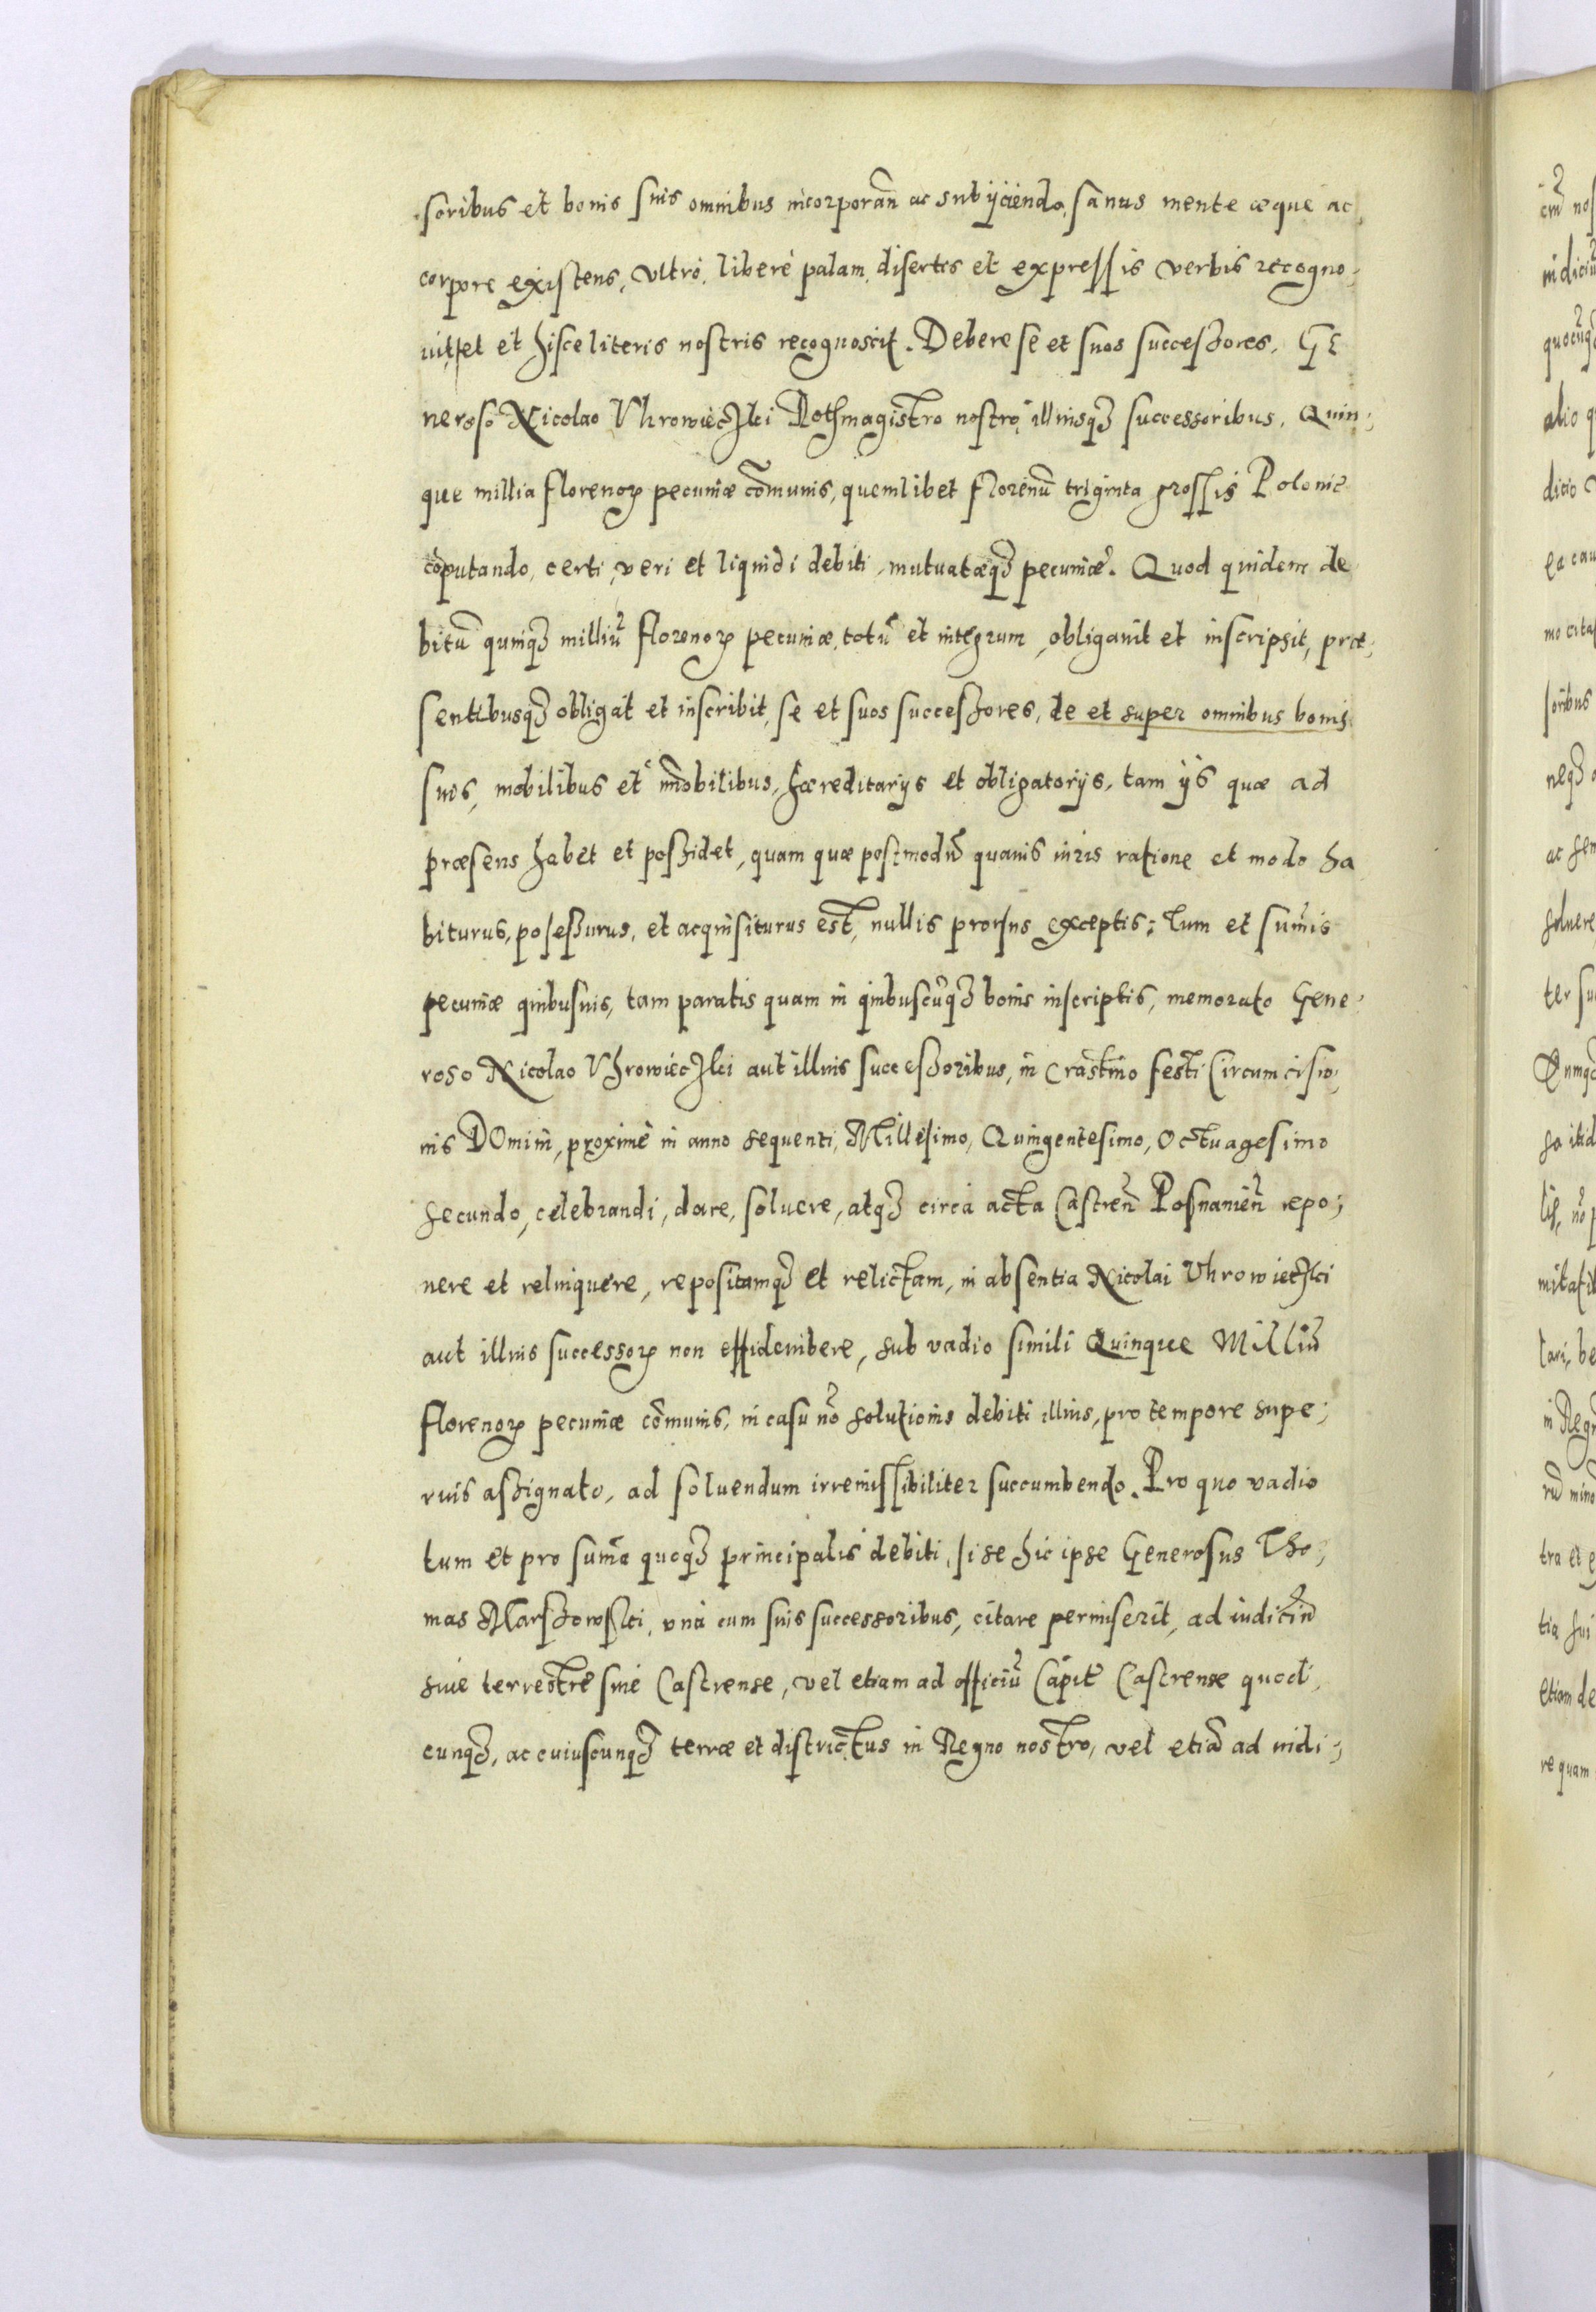 soribus et bonis suis omnibus incorporan̄ ac subijciendo, sanus mente æque ac
corpore existens, vltrò, liberè palam, disertis et expressis verbis recogno,
uit, set et hisce literis nostris recognoscit. Debere se et suos successores, GE
neroso Nicolao Vhrowieczki Rothmagistro nostro, illiusq3 successoribus, Quin,
que millia florenorꝝ pecuniæ com̄unis, quemlibet florenū triginta grossis Polonic
cōputando, certi, veri et liquidi debiti, mutuatæq3 pecuniæ. Quod quidem de
bitū quinq3 milliū florenorꝝ pecuniæ, totū et integrum, obligauit et inscripsit, præ,
sentibusq3 obligat et inscribit, se et suos successores, de et super omnibus bonis
suis, mobilibus et im̄obilibus, hæreditarijs et obligatorijs, tam ijs quæ ad
præsens habet et possidet, quam quæ postmodū quauis iuris ratione et modo ha
biturus, possessurus, et acquisiturus est, nullis prorsus exceptis; Tum et sum̄is
pecuniæ quibusuis, tam paratis quam in quibuscūq3 bonis inscriptis, memorato Gene,
roso Nicolao Vhrowieczki aut illius successoribus, in Crastino festi Circumcisio,
nis DOmini, proximè in anno sequenti, Millesimo, Quingentesimo, Octuagesimo
secundo, celebrandi, dare, soluere, atq3 circa acta Castren̄ Posnanien̄ repo;
nere et relinquere, repositamq3 et relictam, in absentia Nicolai Vhrowieczki
aut illius successorꝝ non effidenibere, sub vadio simili Quinque Milliū
florenorꝝ pecuniæ com̄unis, in casu nō solutionis debiti illius, pro tempore supe;
rius assignato, ad soluendum irremissibiliter succumbendo. Pro quo vadio
tum et pro sum̄a quoq3 principalis debiti, si se hic ipse Generosus Tho;
mas Marszowski, vnà cum suis successoribus, citare permiserit, ad iudiciū
siue terrestre siue Castrense, vel etiam ad officiū Capit̄ Castrense quod,
cunq3, ac cuiuscunq3 terræ et districtus in Regno nostro, vel etiā ad iudi;